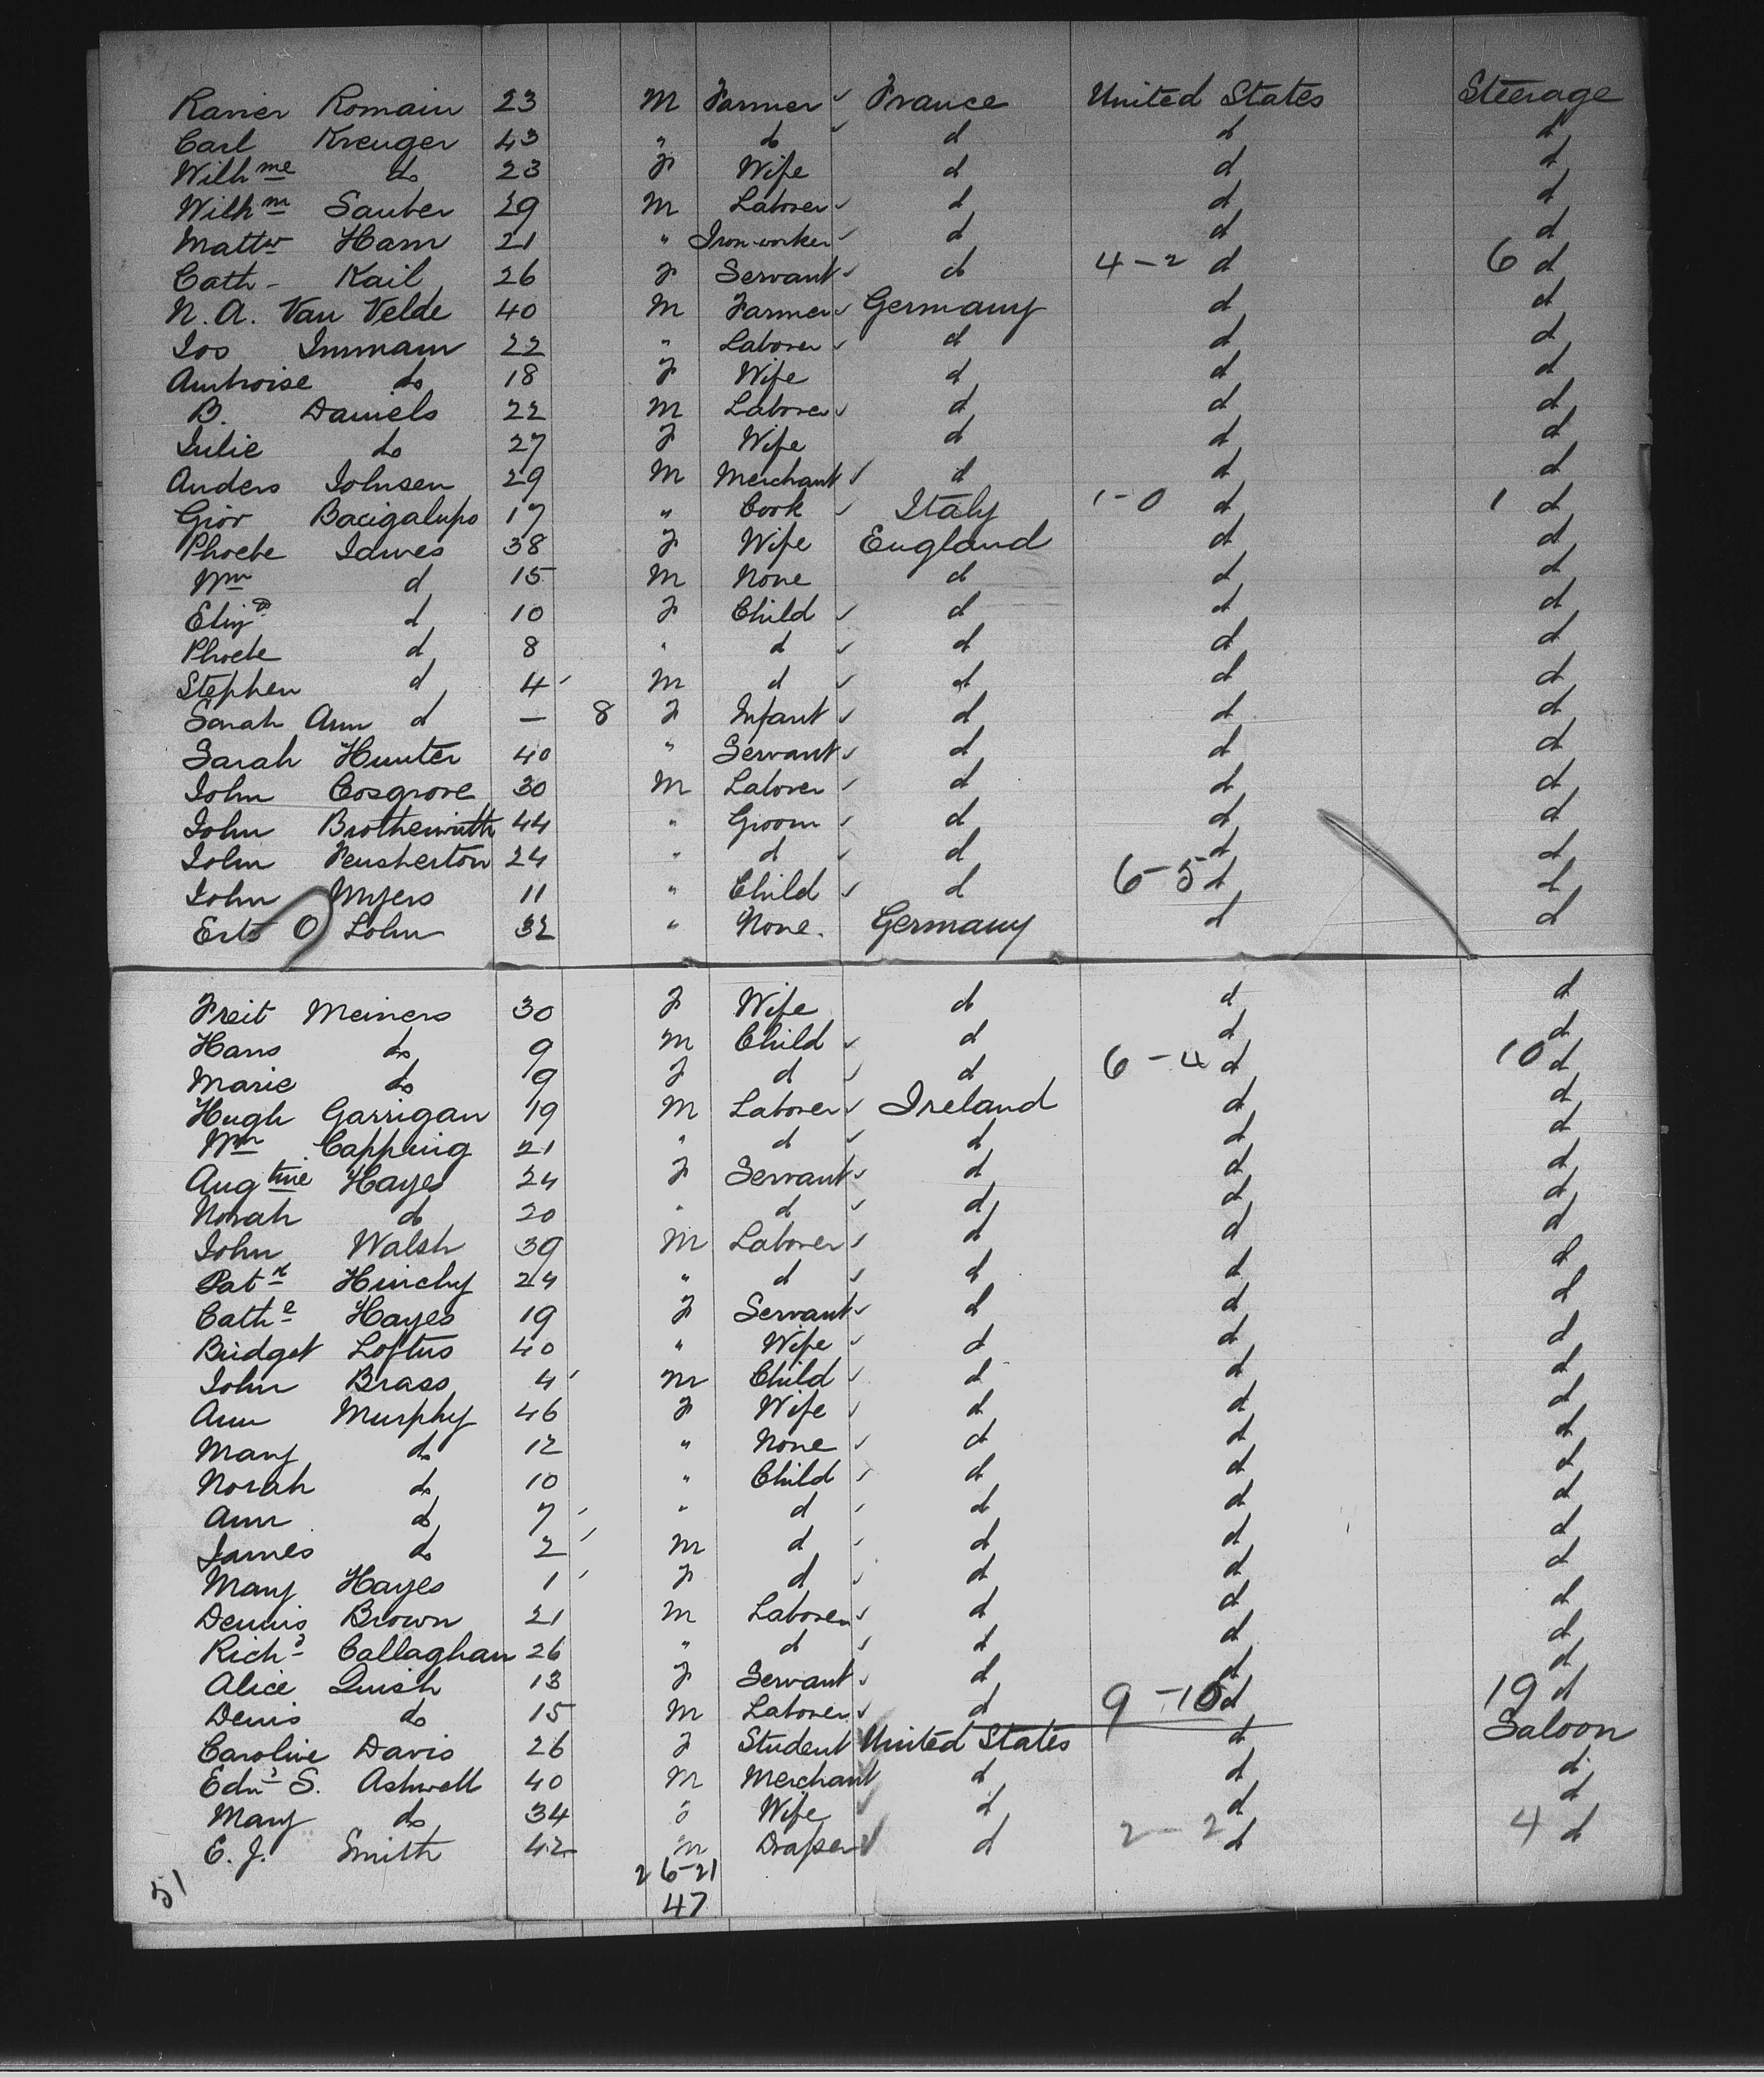 Ravier Romain 23 M Farmer ✓ France United States Steerage
Carl Kreuger 43 " do ✓ d d d
Wilh me do 23 F Wife d d d
Wilh m Sauber 29 M Laborer ✓ d d d
Mattw Ham 21 " Iron-worker ✓ d d d
Cath - Kail 26 F Servant ✓ d 4-2 d 6 d
N. A. Van Velde 40 M Farmer ✓ Germany d d
Jos Immam 22 " Laborer ✓ d d d
Ambroise do 18 F Wife d d d
B. Daniels 22 M Laborer ✓ d d d
Julie do 27 F Wife d d d
Anders Johnsen 29 M Merchant ✓ d d d
Giov Bacigalupo 17 " Cook ✓ Italy 1-0 d 1 d
Phoebe James 38 F Wife England d d
Wm d 15 M None d d d
Eliz d 10 F Child ✓ d d d
Phoebe d 8 " d ✓ d d d
Stephen d 4 M d ✓ d d d
Sarah Ann d — 8 F Infant ✓ d d d
Sarah Hunter 40 " Servant ✓ d d d
John Cosgrove 30 M Laborer ✓ d d d
John 44 " Groom ✓ d d d
John 24 " d ✓ d d d
John Myers 11 " Child ✓ d 6-5 d d
O John 32 " None. Germany d d
Freit Meiners 30 F Wife d d d
Hans do 9 M Child ✓ d d d
Marie do 9 F d ✓ d 6-4 d 10 d
Hugh Garrigan 19 M Laborer ✓ Ireland d d
Wm Capping 21 " d ✓ d d d
Aug tine Hayes 24 F Servant ✓ d d d
Norah do 20 " d ✓ d d d
John Walsh 39 M Laborer ✓ d d d
Pat k Hinchy 24 " d ✓ d d d
Cath e Hayes 19 F Servant ✓ d d d
Bridget Loftus 40 " Wife ✓ d d d
John Brass 4 M Child ✓ d d d
Ann Murphy 46 F Wife ✓ d d d
Mary do 12 " None ✓ d d d
Norah do 10 " Child ✓ d d d
Ann do 7 " d ✓ d d d
James do 2 M d ✓ d d d
Mary Hayes 1 F d ✓ d d d
Dennis Brown 21 M Laborer ✓ d d d
Rich d Callaghan 26 " d ✓ d d d
Alice Quish 13 F Servant ✓ d d d
Denis do 15 M Laborer ✓ d 9-10 d 19 d
Caroline Davis 26 F Student United States d Saloon
Edw S. Ashwell 40 M Merchant d d d
Mary do 34 Wife d d d
E. J. Smith 42 M Draper d 2-2 d 4 d
51 26-21
47